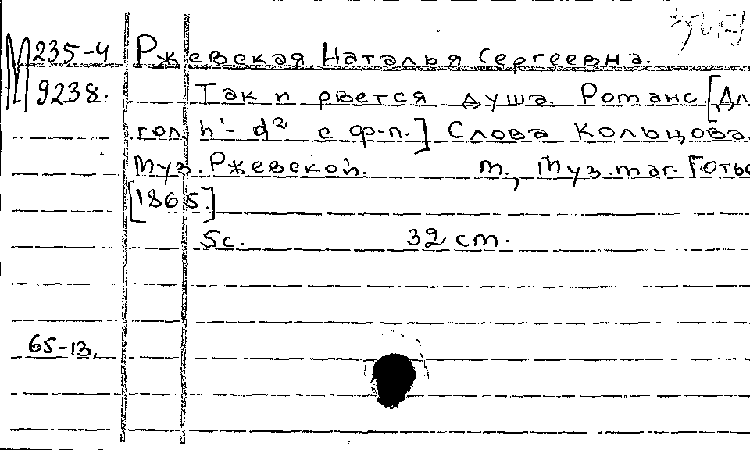 М 235-4 Ржевская Наталья Сергеевна.
9238. Так и рвется душа. Романс [Дл
гол. h¹- d² с ф-п.] Слова Кольцова.
Муз. Ржевской. М., Муз.маг. Готье
[1865.]
5с. 32 см.
65-13.